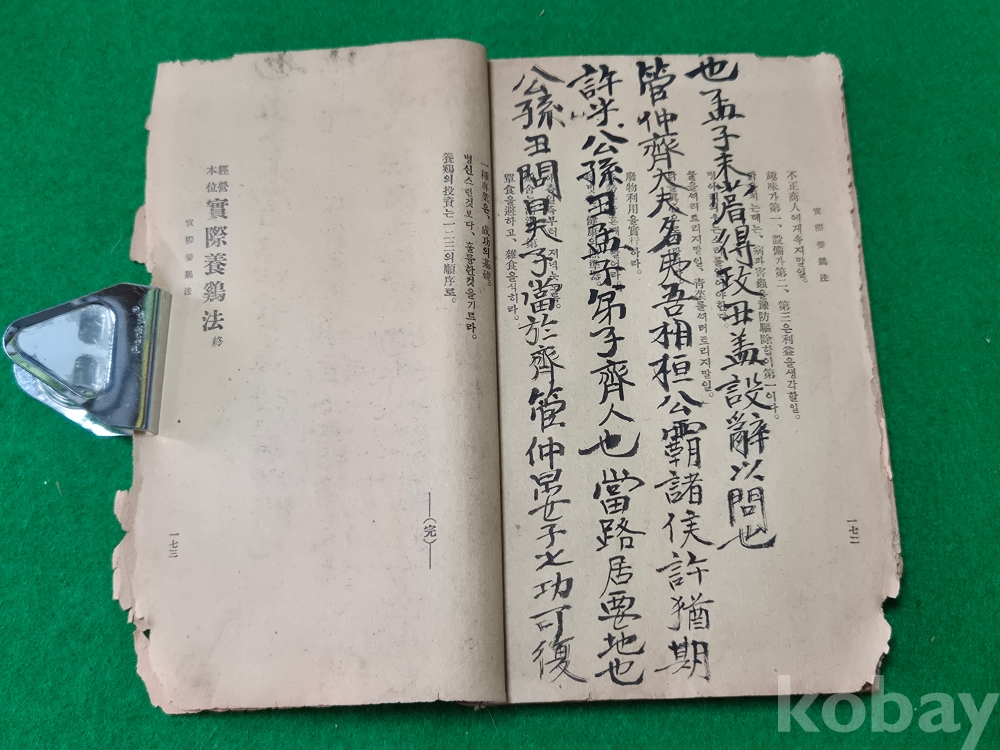 公孫丑問曰夫子當於齊管仲晏子之功可復
許乎公孫丑孟子弟子齊人也當路居要地也
管仲齊大夫名夷吾相桓公霸諸侯許猶期
也孟子未嘗得政丑蓋設辭以問也
實際養鷄法
不正商人에게속지말일。
趣味가第一、設備가第二、第三은利益을생각할일。
는때는、病과害蟲을豫防驅除함이第一이다。
물을써러트리지말일、靑菜를써러트리지말일。
廢物利用을實行하라。
單食을避하고、雜食을식히라。
一七二
은、成功의基礎。
병신스런것보다、훌륭한것을기르라。
養鷄의投資는一二三의順序로。
(完)
經營本位 實際養鷄法 終
實際養鷄法
一七三
kobay